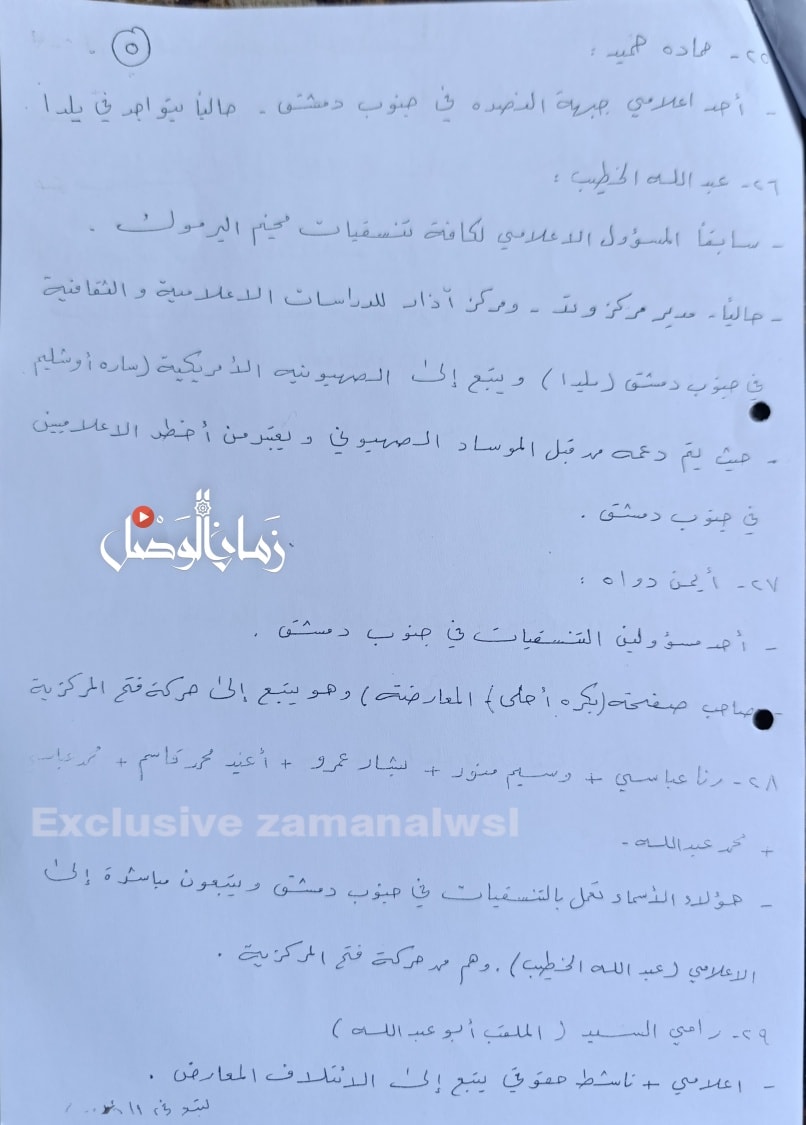 ٥
٢٥- حماده حميد :
- أحد اعلامي جبهة النصره في جنوب دمشق - حالياً يتواجد في يلدا
٢٦- عبد الله الخطيب :
- سابقاً المسؤول الاعلامي لكافة تنسقيات مخيم اليرموك .
- حالياً - مدير مركز وتد - ومركز آذار للدراسات الاعلامية و الثقافية
في جنوب دمشق (يلدا) ويتبع إلى الصهيونيه الأمريكية (ساره أوشليم
- حيث يتم دعمه من قبل الموساد الصهيوني ويعتبر من أخطر الاعلاميين
في جنوب دمشق .
زمان الوصل
٢٧- أيمن دواه :
- أحد مسؤولين التنسقيات في جنوب دمشق .
- صاحب صفحة (بكره أحلى) المعارضة) وهو يتبع إلى حركة فتح المركزية
٢٨- رنا عباسي + وسيم منور + بشار عمرو + أغيد محمد قاسم + محمد
Exclusive zamanalwsl
+ محمد عبدالله -
- هؤلاء الأسماء تعمل بالتنسقيات في جنوب دمشق ويتبعون مباشرة إلى
الاعلامي (عبد الله الخطيب) . وهم من حركة فتح المركزية .
٢٩- رامي السيد ( الملقب أبو عبد الله )
- اعلامي + ناشط حقوقي يتبع إلى الائتلاف المعارض .